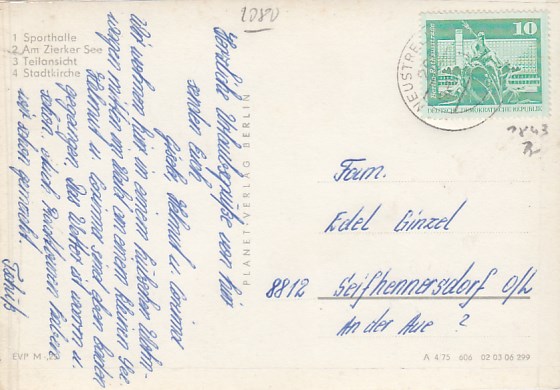 1080
1 Sporthalle
2 Am Zierker See
3 Teilansicht
4 Stadtkirche
Herzliche Urlaubsgrüße von hier
senden Euch
Helmut u. Corinna
Wir wohnen hier in einem hübschen Wohn-
wagen mitten im Wald an einem kleinen See.
Helmut u. Corinna sind eben baden
gegangen. Das Wetter ist warm u.
schön. Auch Bekanntschaften haben
wir schon gemacht.
PLANET-VERLAG BERLIN
10
DEUTSCHE DEMOKRATISCHE REPUBLIK
NEUSTRE
Fam.
Edel Ginzel
8812 Seifhennersdorf O/L
An der Aue 2
EVP M -,25
A 4/75 606 02 03 06 299